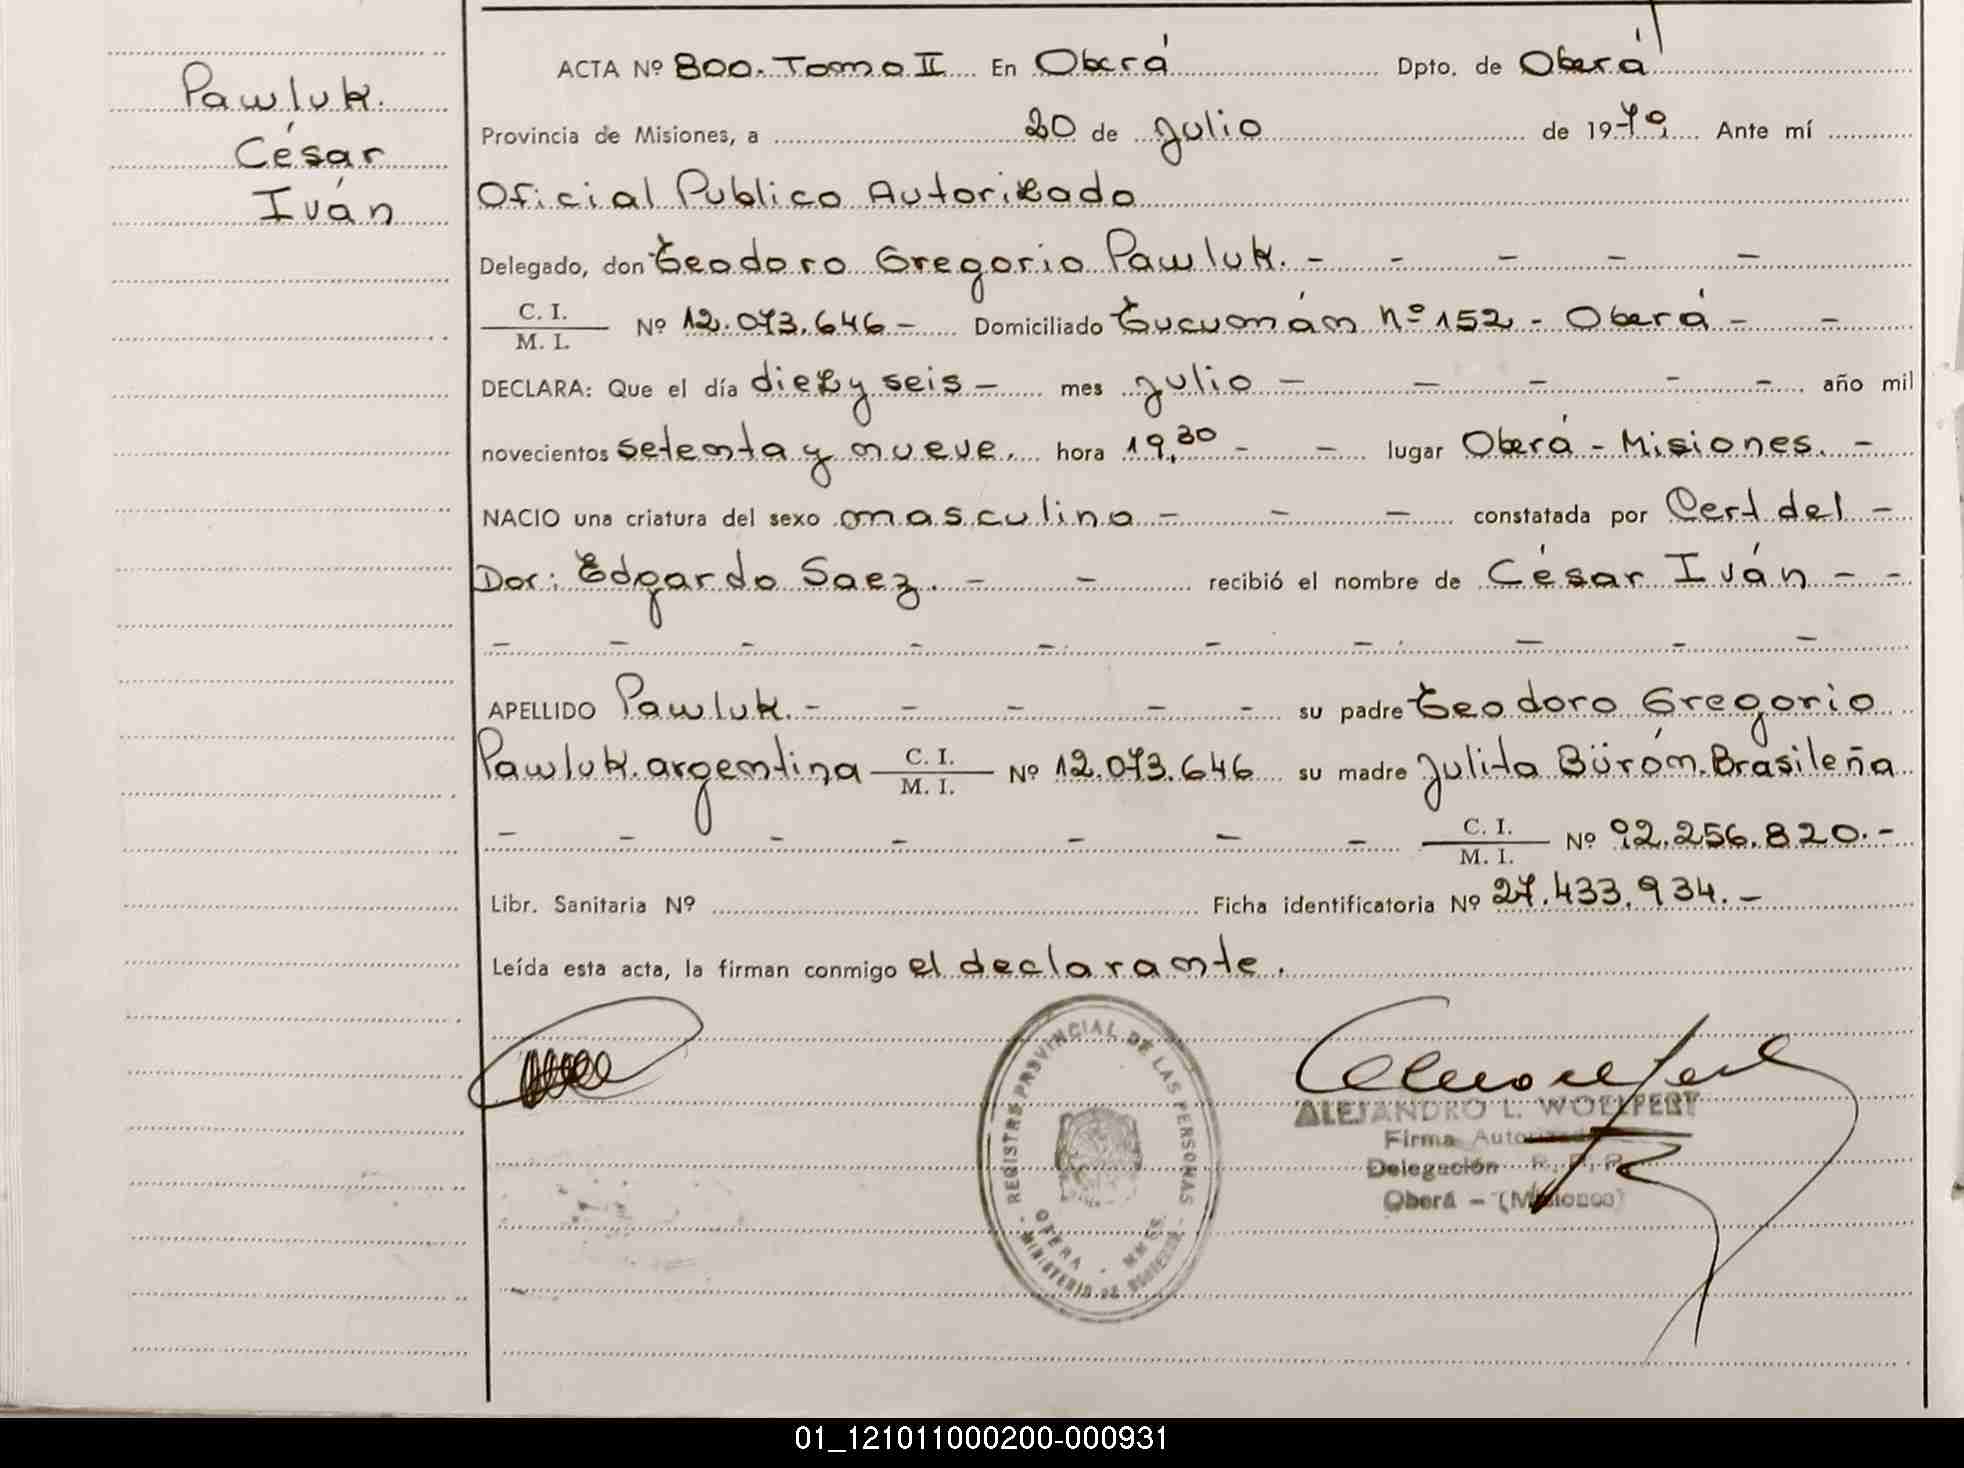 Pawluk.
César
Iván
ACTA Nº 800. Tomo II En Oberá Dpto. de Oberá
Provincia de Misiones, a 20 de julio de 1979 Ante mí
Oficial Publico Autorizado
Delegado, don Teodoro Gregorio Pawluk. - - - - -
C. I.
M. I. Nº 12.073.646 - Domiciliado Tucumán nº 152 - Oberá - -
DECLARA: Que el día diez y seis - mes julio - - - - - año mil
novecientos setenta y nueve. hora 19,30 - - lugar Oberá - Misiones. -
NACIO una criatura del sexo masculino - - - constatada por Cert del -
Dor: Edgardo Saez. - - recibió el nombre de César Iván - -
- - - - - - - - - -
APELLIDO Pawluk. - - - - - su padre Teodoro Gregorio
Pawluk. argentina C. I.
M. I. Nº 12.073.646 su madre Julita Bürón. Brasileña
- - - - - - - C. I.
M. I. Nº 92.256.820. -
Libr. Sanitaria Nº Ficha identificatoria Nº 27.433.934. -
Leída esta acta, la firman conmigo el declarante.
REGISTRO PROVINCIAL DE LAS PERSONAS
OBERA - MNES.
MINISTERIO DE GOBIERNO
ALEJANDRO L. WOELFERT
Firma Autorizada
Delegación R. P. P.
Oberá - (Misiones)
01_121011000200-000931